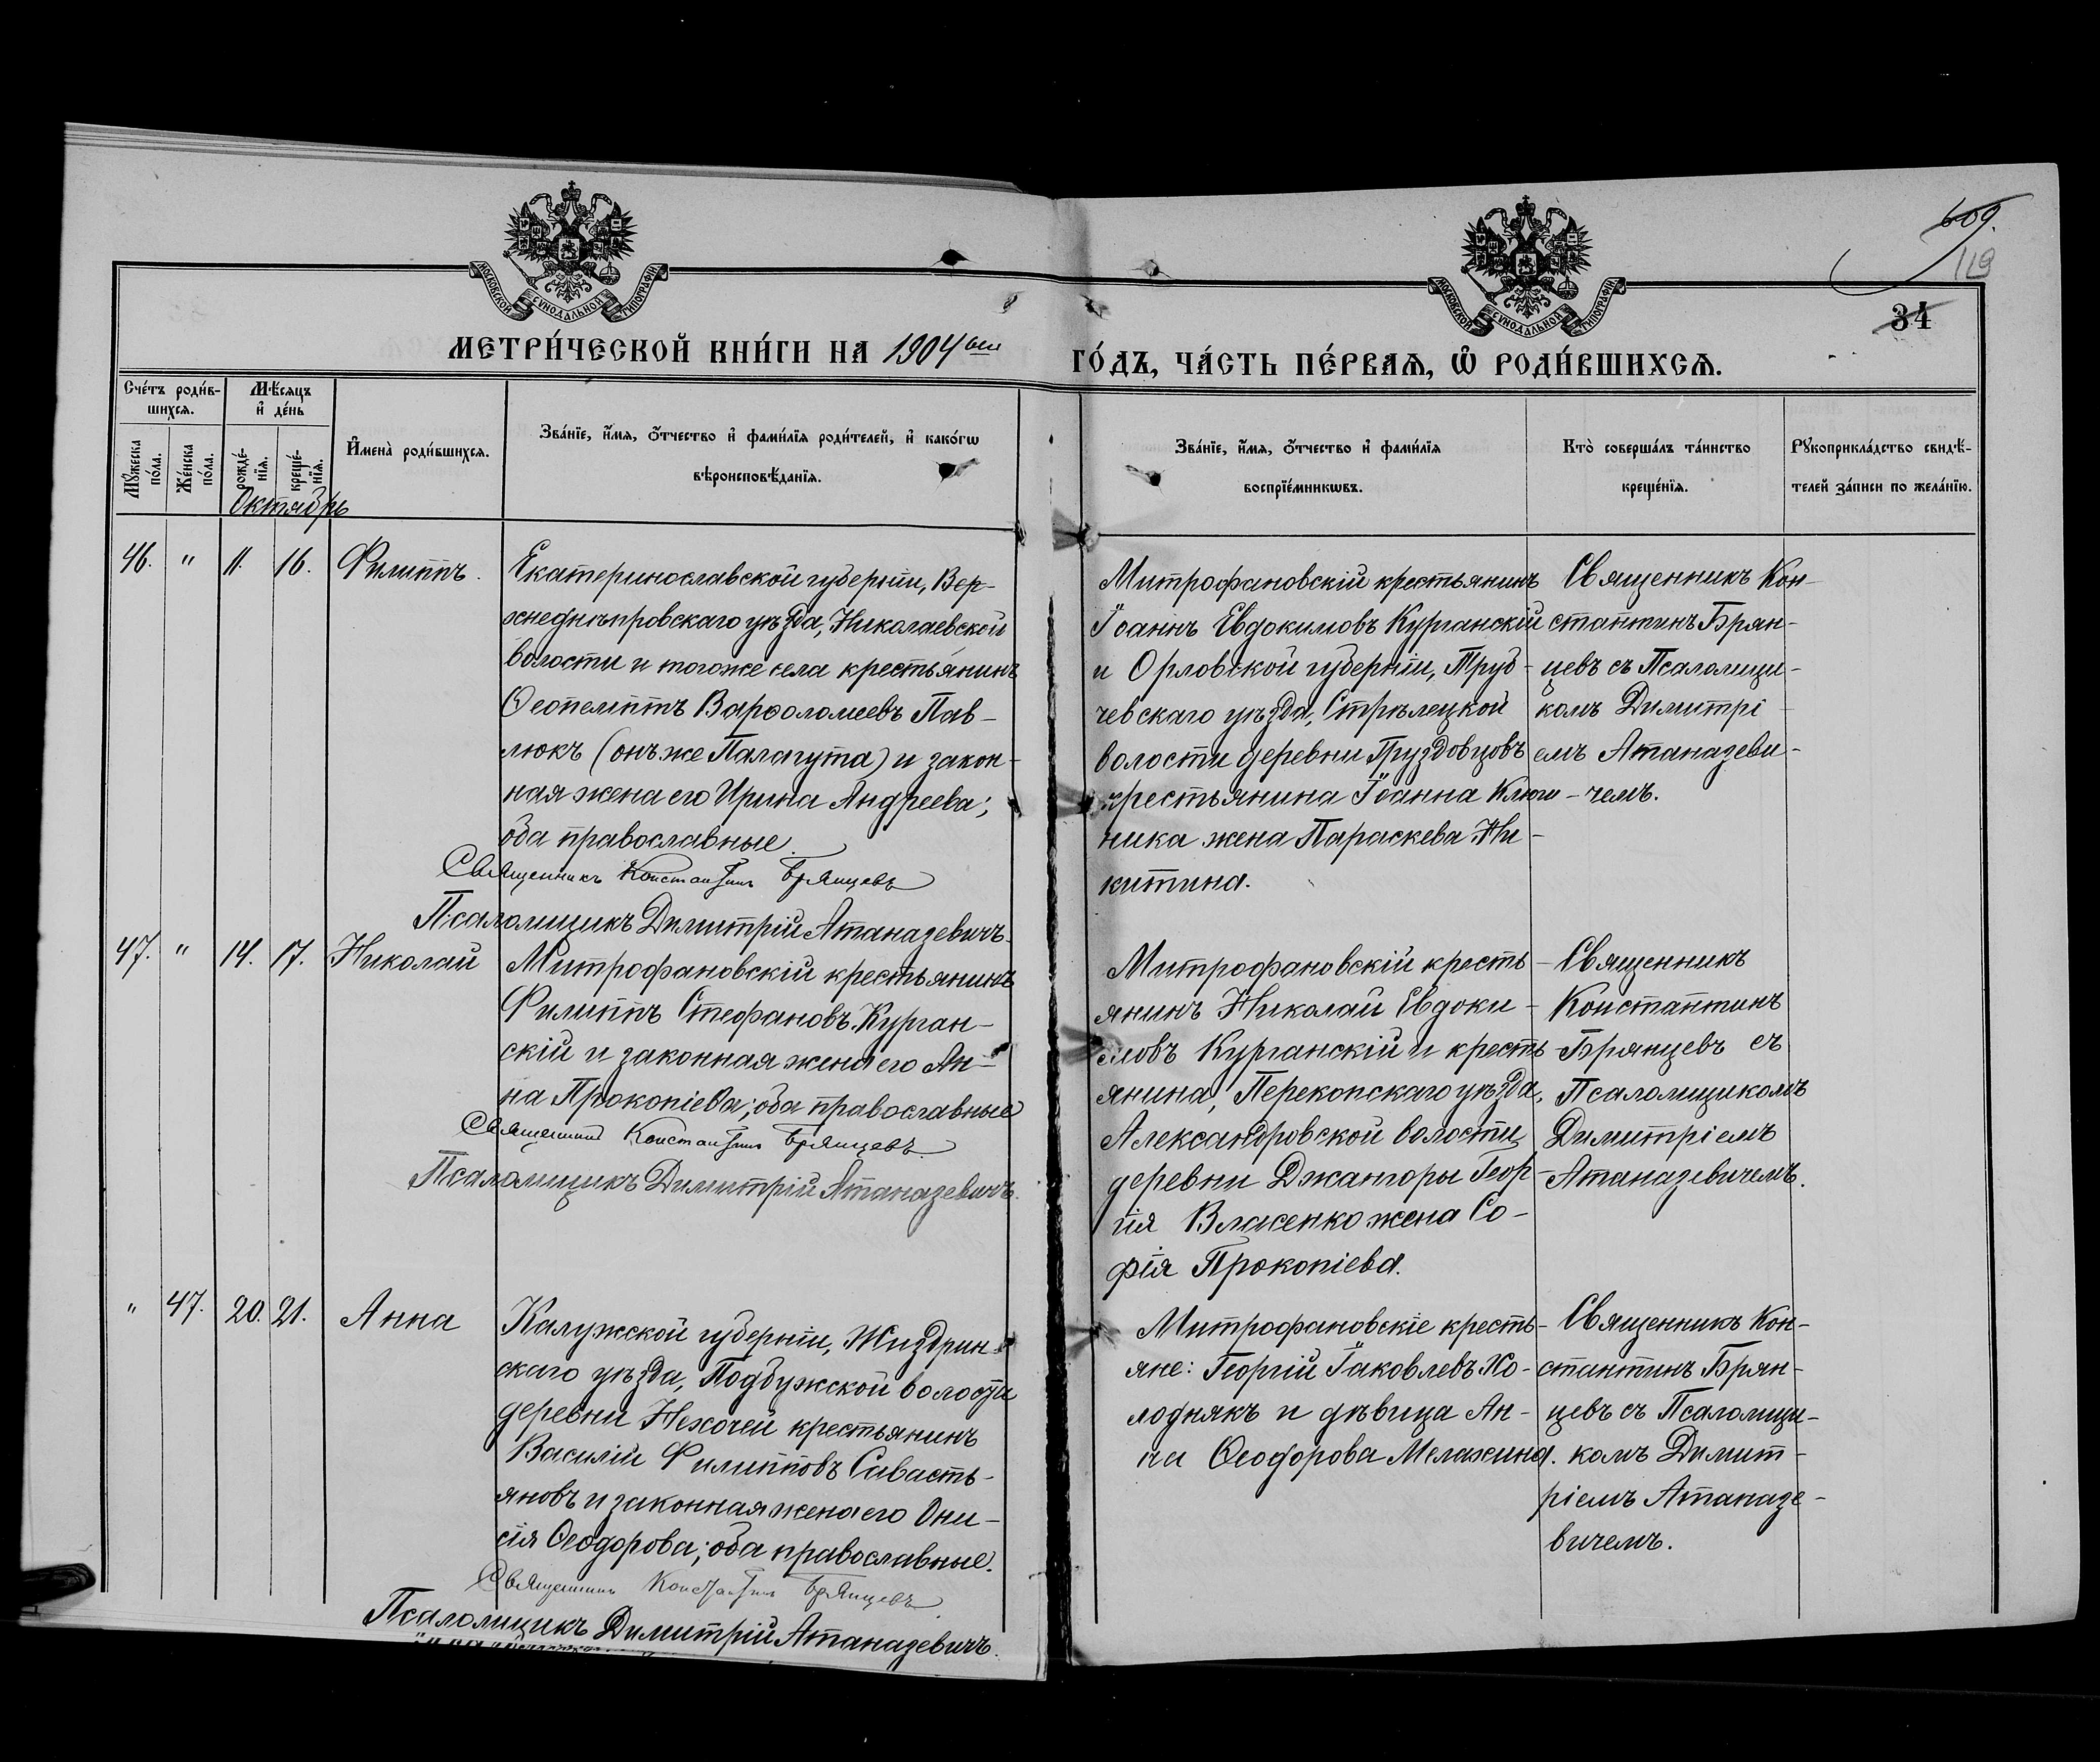 609.
119
34
МОСКОВСКОЙ СѴНОДАЛЬНОЙ ТИПОГРАФІИ
МОСКОВСКОЙ СѴНОДАЛЬНОЙ ТИПОГРАФІИ
МЕТРИ́ЧЕСКОЙ КНИ́ГИ НА 1904
ГО́ДЪ, ЧА́СТЬ ПЕ́РВАѦ, Ѽ РОДИ́ВШИХСѦ.
Сче́тъ роди́в-
шихсѧ.
Мꙋжеска по́ла.
Же́нска по́ла.
Мѣ́сѧцъ
и҆ де́нь
рожде́-
нїѧ.
креще́-
нїѧ.
Октябрь
И҆мена̀ роди́вшихсѧ.
Зва́нїе, и҆́мѧ, ѻ҆́тчество и҆ фами́лїѧ роди́телей, и҆ како́гѡ
вѣроисповѣ́данїѧ.
Зва́нїе, и҆́мѧ, ѻ҆́тчество и҆ фами́лїѧ
воспрїе́мникѡвъ.
Кто̀ соверша́лъ та́инство
креще́нїѧ.
Рꙋкоприкла́дство свидѣ́-
телей за́писи по жела́нїю.
46. " 11. 16. Филиппъ.
Екатеринославской губерніи, Вер-
хнеднѣпровскаго уѣзда, Николаевской
волости и тогоже села крестьянинъ
Ѳеопемптъ Варѳоломеевъ Пав-
люкъ (онъ же Палагута) и закон-
ная жена его Ирина Андреева;
оба православные.
Священникъ Константинъ Брянцевъ
Псаломщикъ Димитрій Атаназевичъ.
Митрофановскій крестьянинъ
Іоаннъ Евдокимовъ Курганскій
и Орловской губерніи, Труб-
чевскаго уѣзда, Стрѣлецкой
волости деревни Груздовцовъ
крестьянина Іоанна Ключ-
ника жена Параскева Ни-
китина.
Священникъ Кон-
стантинъ Брян-
цевъ съ Псаломщи-
комъ Димитрі-
емъ Атаназеви-
чемъ.
47. " 14. 17. Николай
Митрофановскій крестьянинъ
Филиппъ Стефановъ Курган-
скій и законная жена его Ан-
на Прокопіева; оба православные
Священникъ Константинъ Брянцевъ
Псаломщикъ Димитрій Атаназевичъ.
Митрофановскій кресть-
янинъ Николай Евдоки-
мовъ Курганскій и кресть-
янина, Перекопскаго уѣзда,
Александровской волости
деревни Джангоры Геор-
гія Власенко жена Со-
фія Прокопіева.
Священникъ
Константинъ
Брянцевъ съ
Псаломщикомъ
Димитріемъ
Атаназевичемъ.
" 47. 20. 21. Анна
Калужской губерніи, Жиздрин-
скаго уѣзда, Подбужской волости
деревни Нехочей крестьянинъ
Василій Филипповъ Савасть-
яновъ и законная жена его Они-
сія Ѳеодорова; оба православные.
Священникъ Константинъ Брянцевъ
Псаломщикъ Димитрій Атаназевичъ.
Митрофановскіе кресть-
яне: Георгій Іаковлевъ Хо-
лоднякъ и дѣвица Ан-
на Ѳеодорова Мелахина.
Священникъ Кон-
стантинъ Брян-
цевъ съ Псаломщи-
комъ Димит-
ріемъ Атаназе-
вичемъ.